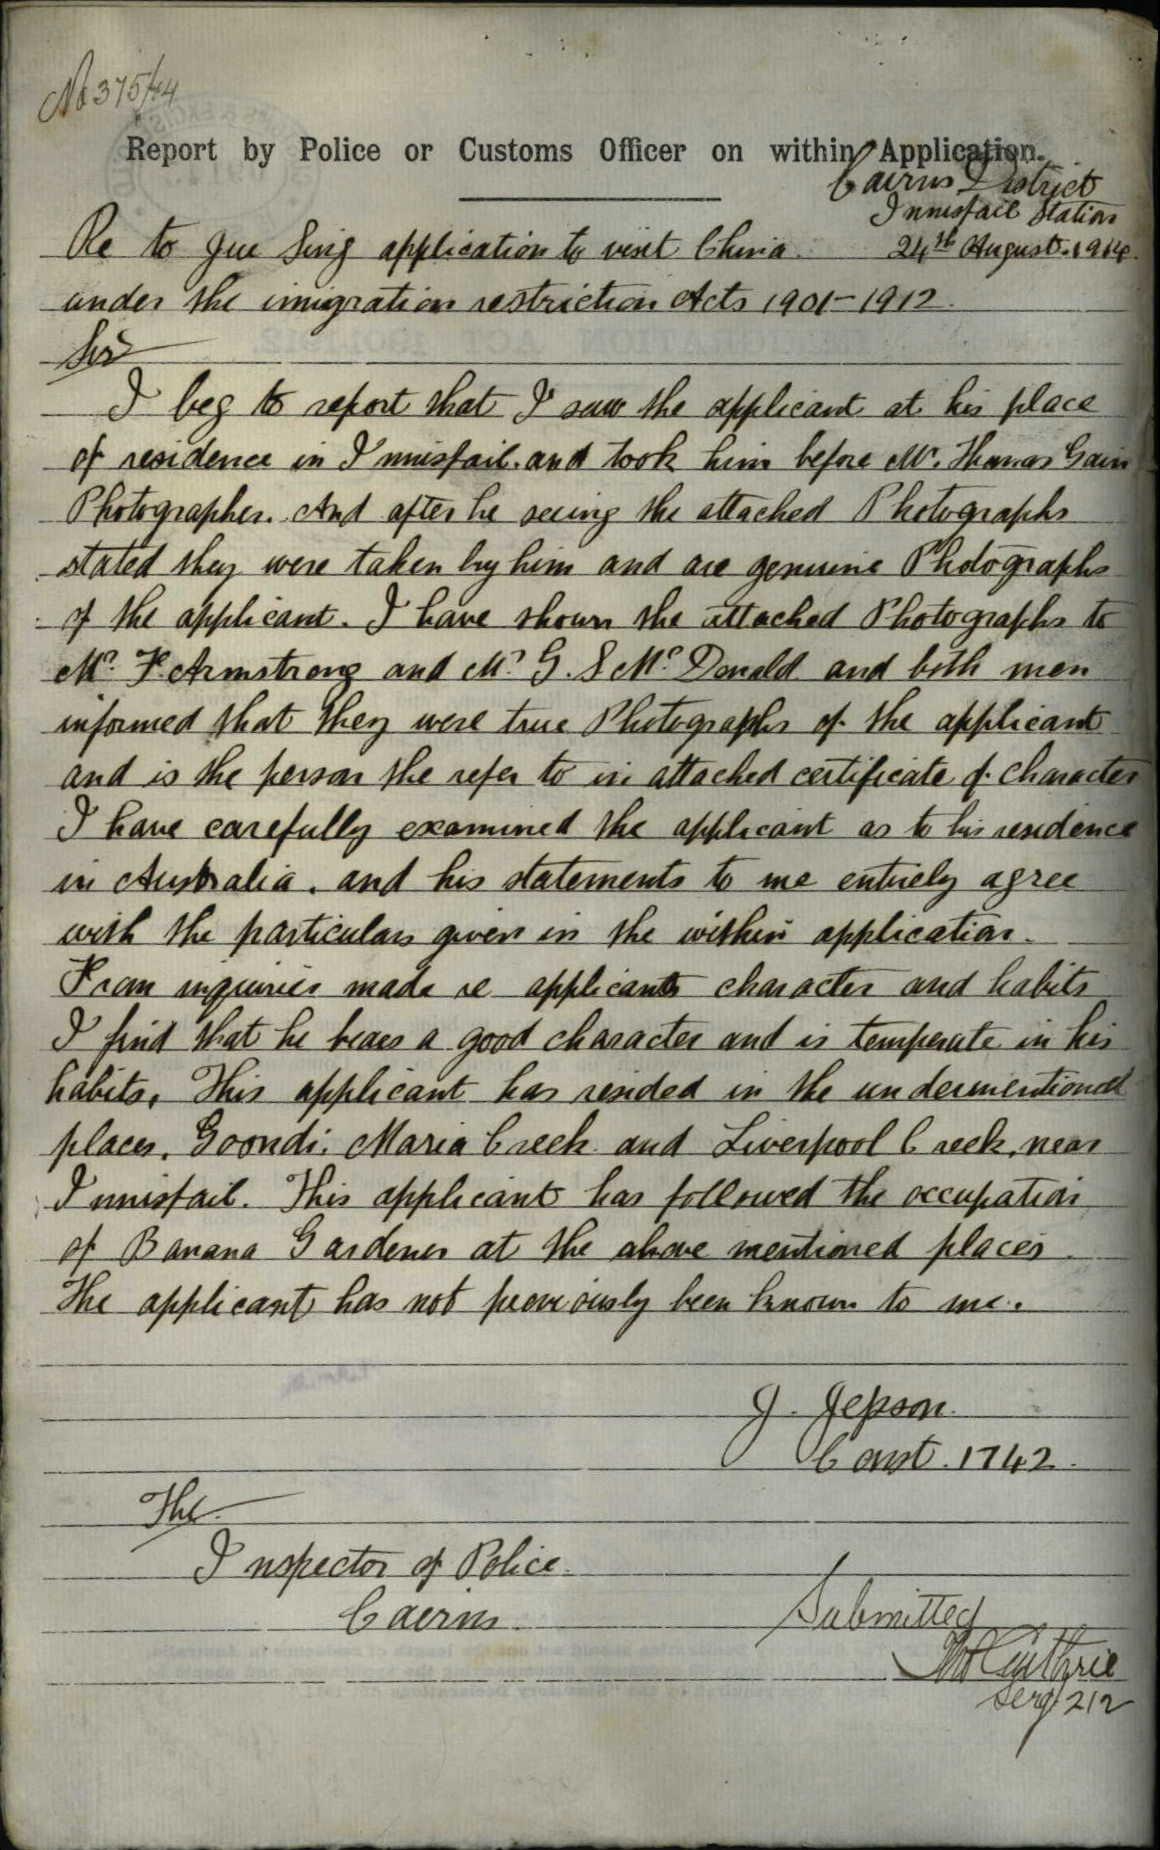 No 375/14
Report by Police or Customs Officer on within Application.
Cairns District
Innisfail Station
24th August. 1914.
Re to Jue Sing application to visit China
under the imigration restriction Acts 1901-1912.
Sir
I beg to report that I saw the applicant at his place
of residence in Innisfail. and took him before Mr. Thomas Gain
Photographer. And after he seeing the attached Photographs
stated they were taken by him and are genuine Photographs
of the applicant. I have shown the attached Photographs to
Mr. F. Armstrong and Mr. G. S McDonald and both men
informed that they were true Photographs of the applicant
and is the person the refer to in attached certificate of character
I have carefully examined the applicant as to his residence
in Australia. and his statements to me entirely agree
with the particulars given in the within application.
From inquiries made re applicants character and habits
I find that he bears a good character and is temperate in his
habits. This applicant has resided in the undermentioned
places. Goondi. Maria Creek and Liverpool Creek. near
Innisfail. This applicant has followed the occupation
of Banana Gardener at the above mentioned places
The applicant has not previously been known to me.
J. Jepson.
Const. 1742.
The
Inspector of Police.
Cairns.
Submitted
Guthrie
Serg 212